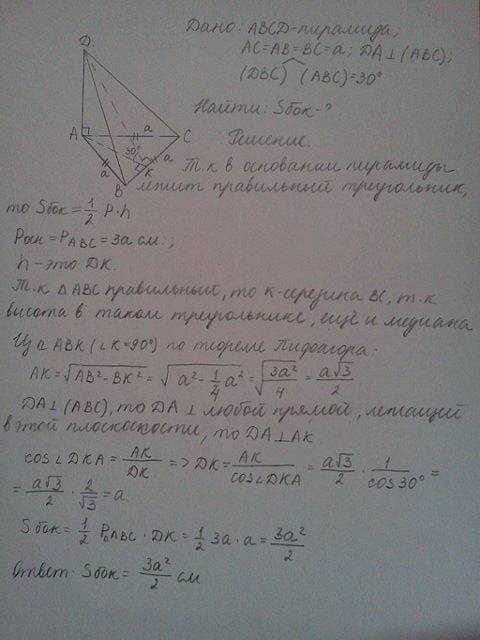 Дано: ABCD-пирамида;
AC=AB=BC=a; DA⊥(ABC);
(DBC)^(ABC)=30°
Найти: Sбок-?
Решение.
Т.к в основании пирамиды
лежит правильный треугольник,
то Sбок=1/2 P·h
Pосн=PABC=3a см.;
h-это DK.
Т.к ΔABC правильный, то K-середина BC, т.к
высота в таком треугольнике, ещё и медиана
Из ΔABK (∠K=90°) по теореме Пифагора:
AK=√(AB²-BK²)=√(a²-1/4a²)=√(3a²/4)=a√3/2
DA⊥(ABC), то DA⊥ любой прямой, лежащей
в этой плоскости, то DA⊥AK
cos∠DKA=AK/DK=>DK=AK/cos∠DKA=a√3/2·1/cos30°=
=a√3/2·2/√3=a
Sбок=1/2 PΔABC·DK=1/2 3a·a=3a²/2
Ответ: Sбок=3a²/2 см
D
A
a
C
30°
a
a
K
B